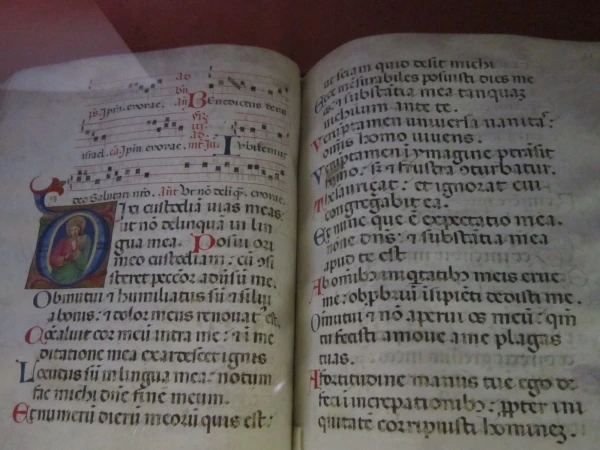 ps. Ipm. evovae. añ Benedictus deus
israel. ca. Ipm. evovae. Iubilemus
deo Salutari nro. añt Ut nō delīqȝ. evovae.
Dixi custodiā vias meas:
ut nō delinquā in lin
gua mea. Posui ori
meo custodiam: cū ↄsi
steret peccōr adūsū me.
Obmutui ⁊ humiliatus sū ⁊ silui
a bonis: ⁊ dolor meus renovatꝰ est.
Cōcaluit cor meū intra me: ⁊ ī me
ditatione mea exardescet ignis
Locutus sū in lingua mea: notum
fac michi dñe finē meum.
Et numerū dierū meorū quis est:
ut sciam quid desit michi
Ecce mēsurabiles posuisti dies me
os: ⁊ substātia mea tanquaȝ
nichilum ante te.
Veruptamen universa vanitas:
omīs homo vivens.
Veruptamen ī ymagine ptrāsit
homo: sȝ ⁊ frustra ↄturbatur.
Thesauriçat: et ignorat cui
congregabit ea.
Et nunc que ē expectatio mea.
nōne dñs: ⁊ substātia mea
apud te est
Ab omībȝ iniqtatibȝ meis erue
me: obpbriū īsipiēti dedisti me.
Omutui ⁊ nō aperui os meū: qm̄
tu fecisti amove a me plagas
tuas.
A fortitudine manus tue ego de
feci ī increpationibȝ: ppter ini
quitatē corripuisti hominez.